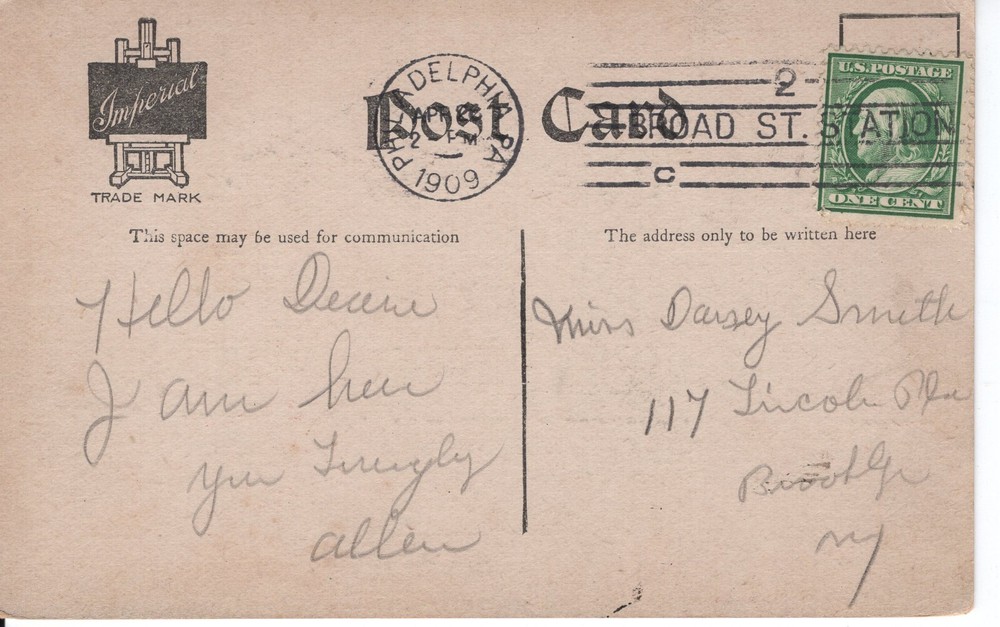 Imperial
TRADE MARK
Post Card
PHILADELPHIA PA
APR
2 PM
1909
2
BROAD ST. STATION
C
U.S. POSTAGE
ONE CENT
This space may be used for communication
The address only to be written here
Hello
I am
Allen
Miss Darsey Smith
117 Lincoln Pla
Brooklyn
NY